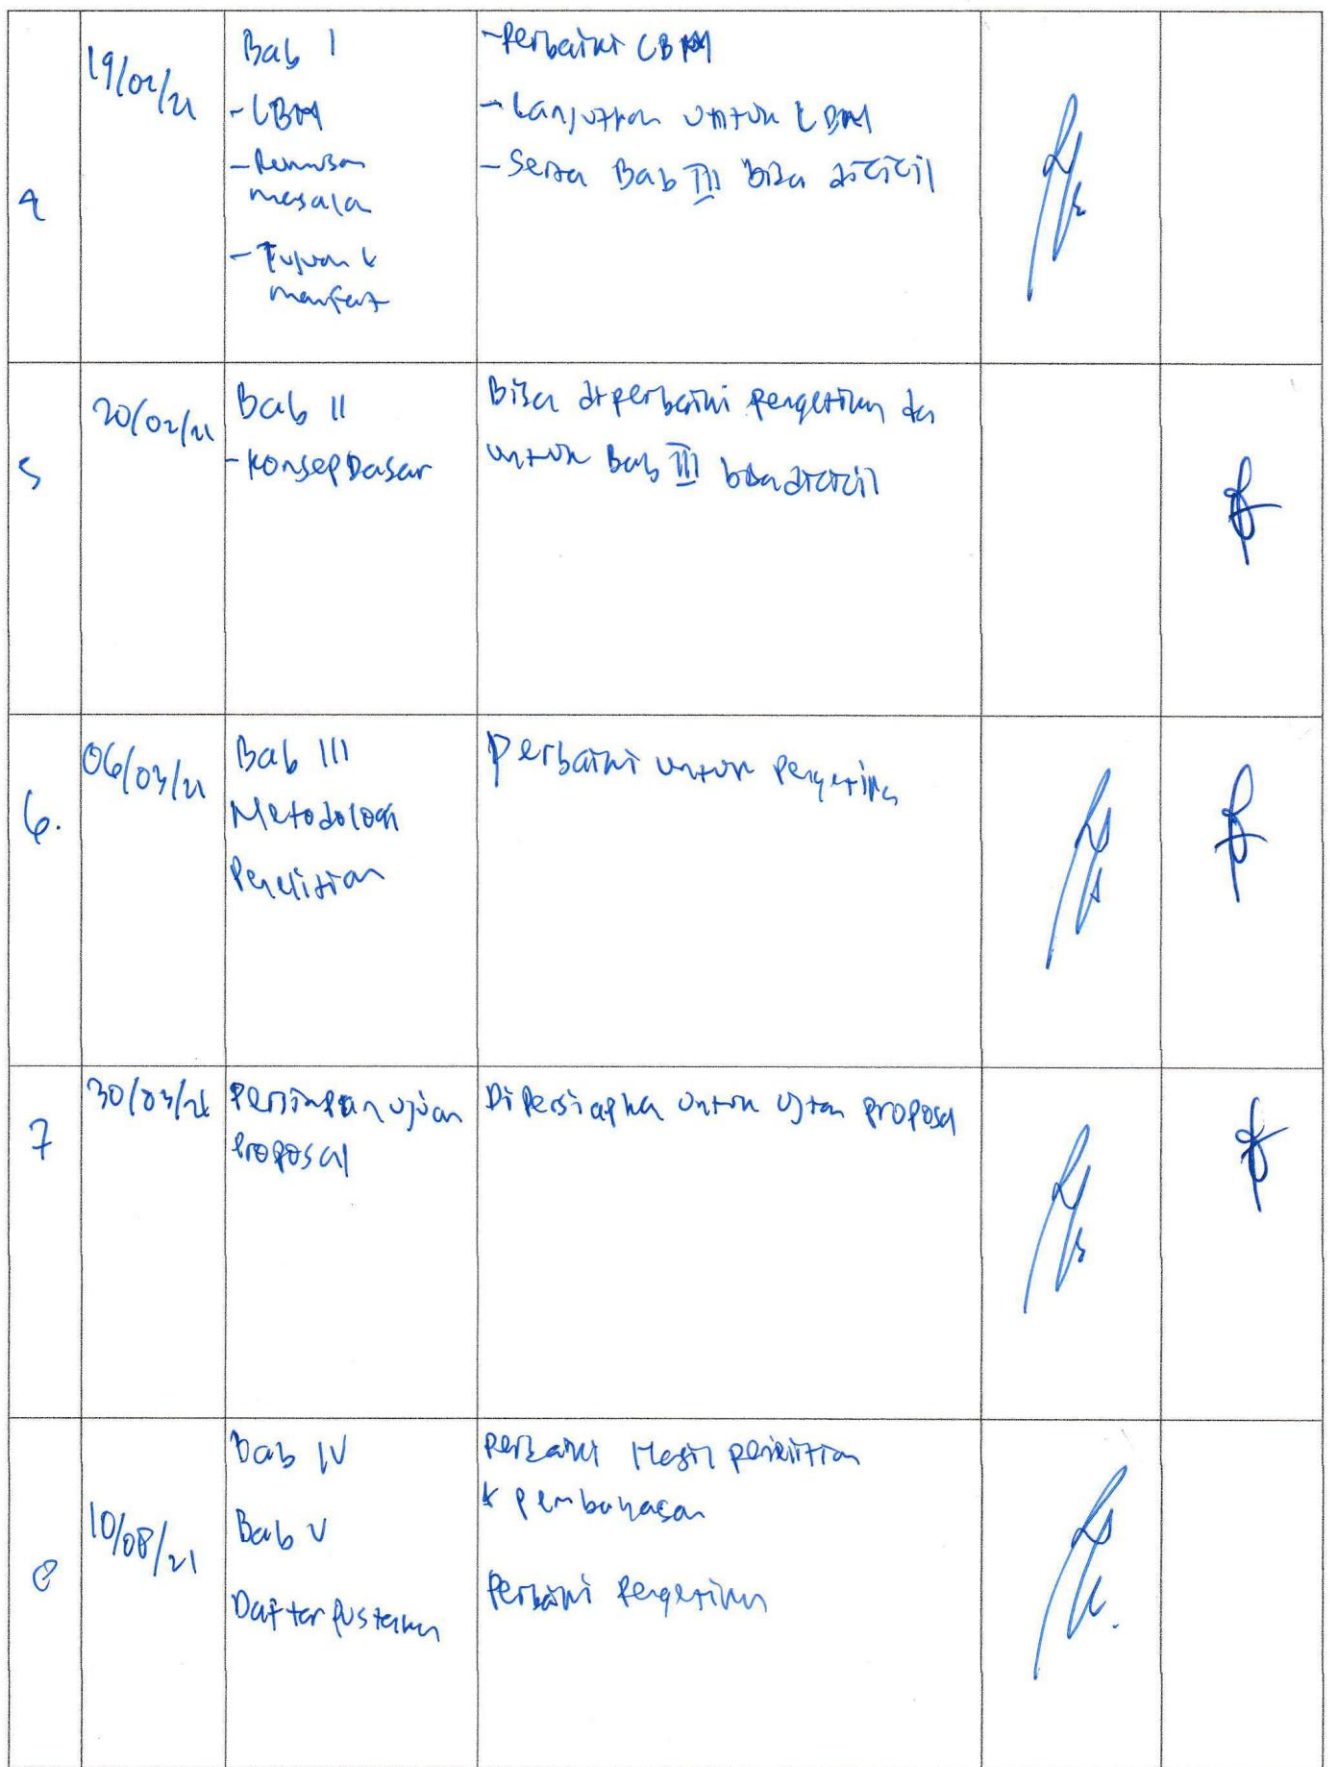 4
19/02/21
Bab I
- LBM
- Rumusan
masala
- Tujuan &
manfaat
- Perbaiki LBM
- Lanjutkan untuk LBM
- Serta Bab III bisa dicicil
5
20/02/21
Bab II
- Konsep Dasar
Bisa diperbaiki pengetikan da
untuk Bab III bisa dicicil
6.
06/03/21
Bab III
Metodologi
Penelitian
Perbaiki untuk pengetikan
7
30/03/21
Persiapan ujian
Proposal
Dipersiapka untuk ujian proposal
8
10/08/21
Bab IV
Bab V
Daftar Pustaka
Perbaiki Hasil penelitian
& pembahasan
Perbaiki Pengetikan